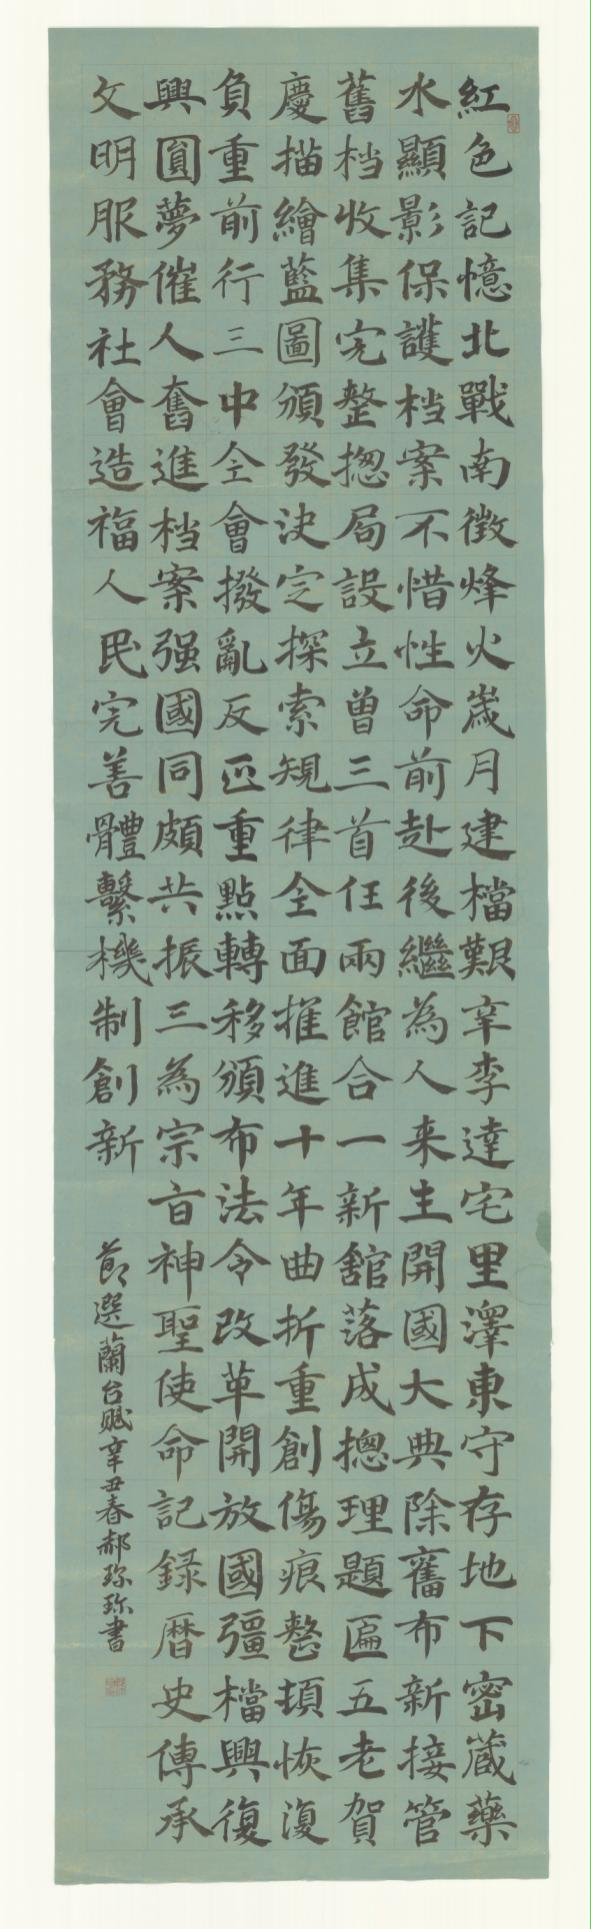 紅色記憶北戰南徵烽火嵗月建檔艱辛李達宅里澤東守存地下密蔵藥
水顯影保護档案不惜性命前赴後繼為人来主開國大典除舊布新接管
舊档收集完整揔局設立曾三首任兩館合一新舘落成摠理題匾五老賀
慶描繪藍圖頒發决定探索規律全面推進十年曲折重創傷痕整頓恢復
負重前行三中全會撥亂反正重點轉移頒布法令改革開放國彊檔興復
興圓夢催人奮進档案强國同頗共振三為宗旨神聖使命記録曆史傳承
文明服務社會造福人民完善體繫機制創新
節選蘭台賦辛丑春郝珎珎書